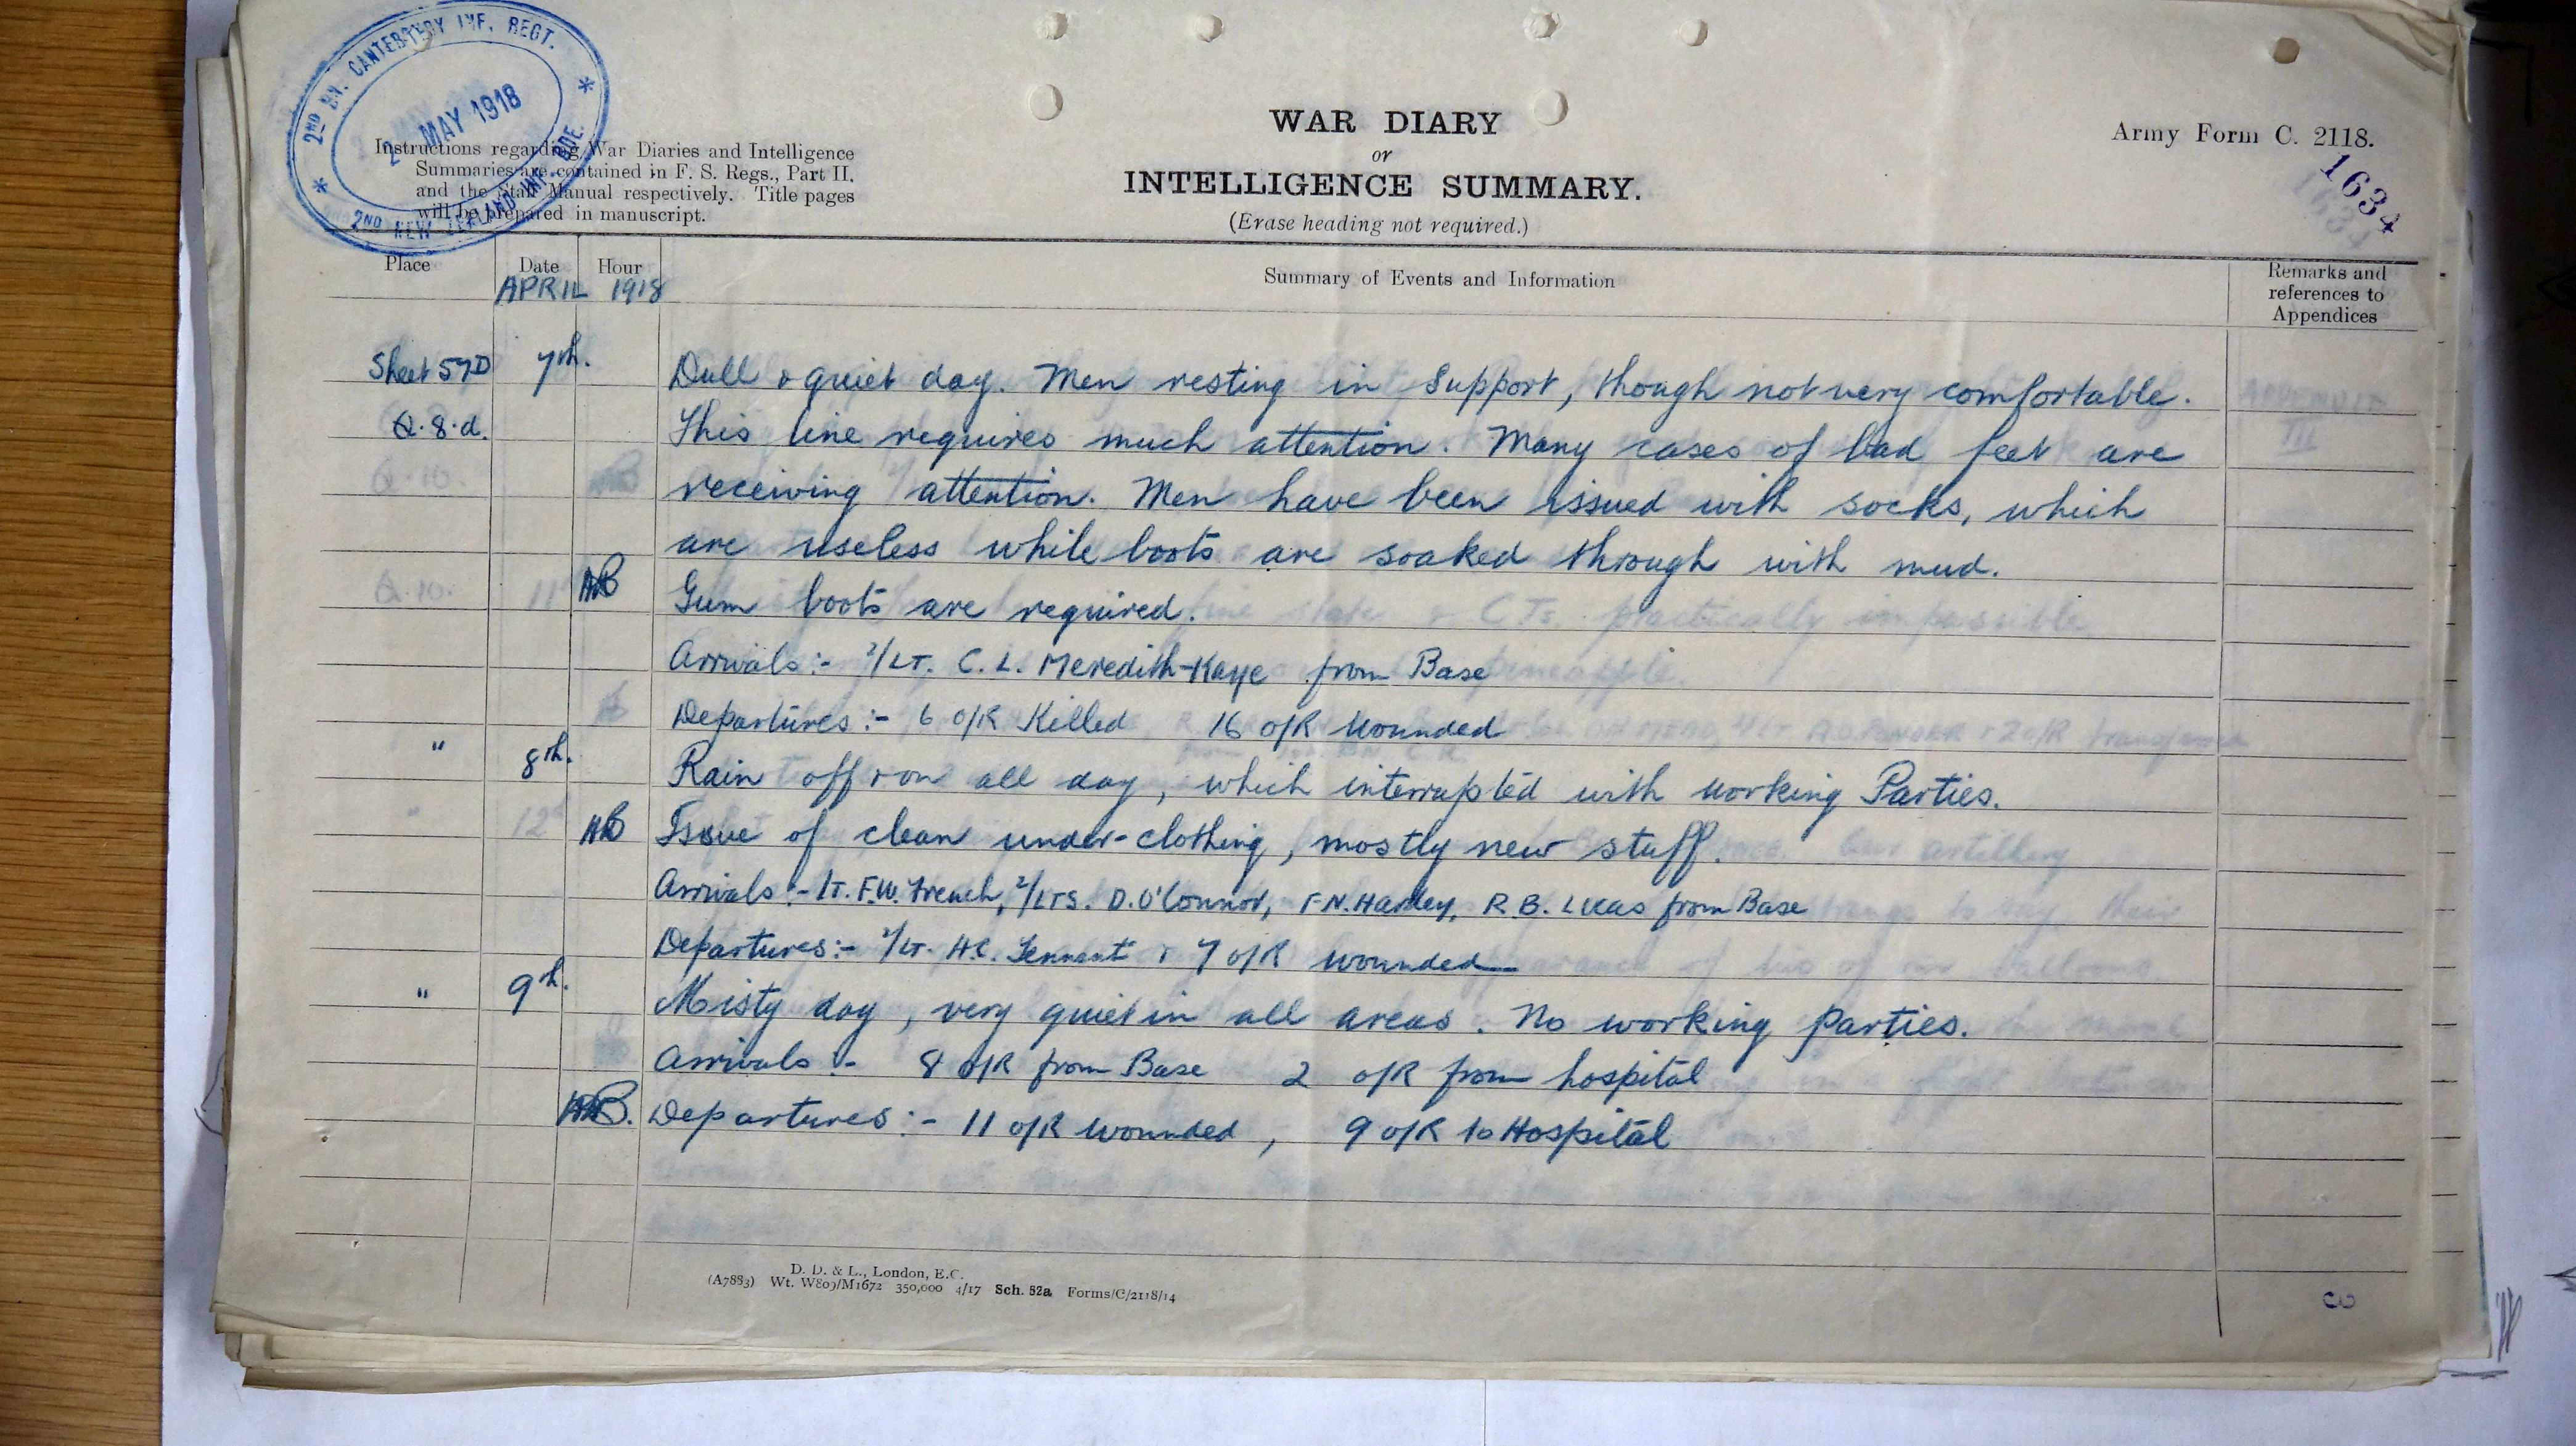 2ND BN. CANTERBURY INF. REGT.
2 MAY 1918
2ND NEW ZEALAND INF. BDE.
Instructions regarding War Diaries and Intelligence
Summaries are contained in F. S. Regs., Part II,
and the Staff Manual respectively. Title pages
will be prepared in manuscript.
WAR DIARY
or
INTELLIGENCE SUMMARY.
(Erase heading not required.)
Army Form C. 2118.
1634
Place Date Hour Summary of Events and Information Remarks and references to Appendices
APRIL 1918
Sheet 57D 7th. Dull & quiet day. Men resting in Support, though not very comfortable.
Q.8.d. This line requires much attention. Many cases of bad feet are
receiving attention. Men have been issued with socks, which
are useless while boots are soaked through with mud.
Gum boots are required.
Arrivals:- 2/LT. C. L. Meredith-Kaye from Base
Departures:- 6 O/R Killed 16 O/R Wounded
" 8th. Rain off & on all day, which interrupted with working Parties.
Issue of clean under-clothing, mostly new stuff.
Arrivals:- LT. F.W. French, 2/LTS. D. O'Connor, F.N. Harley, R. B. Lucas from Base
Departures:- 2/LT. H.C. Tennant & 7 O/R wounded
" 9th. Misty day, very quiet in all areas. No working parties.
Arrivals:- 8 O/R from Base 2 O/R from hospital
Departures:- 11 O/R wounded, 9 O/R to Hospital
D. D. & L., London, E.C.
(A7883) Wt. W809/M1672 350,000 4/17 Sch. 52a Forms/C/2118/14